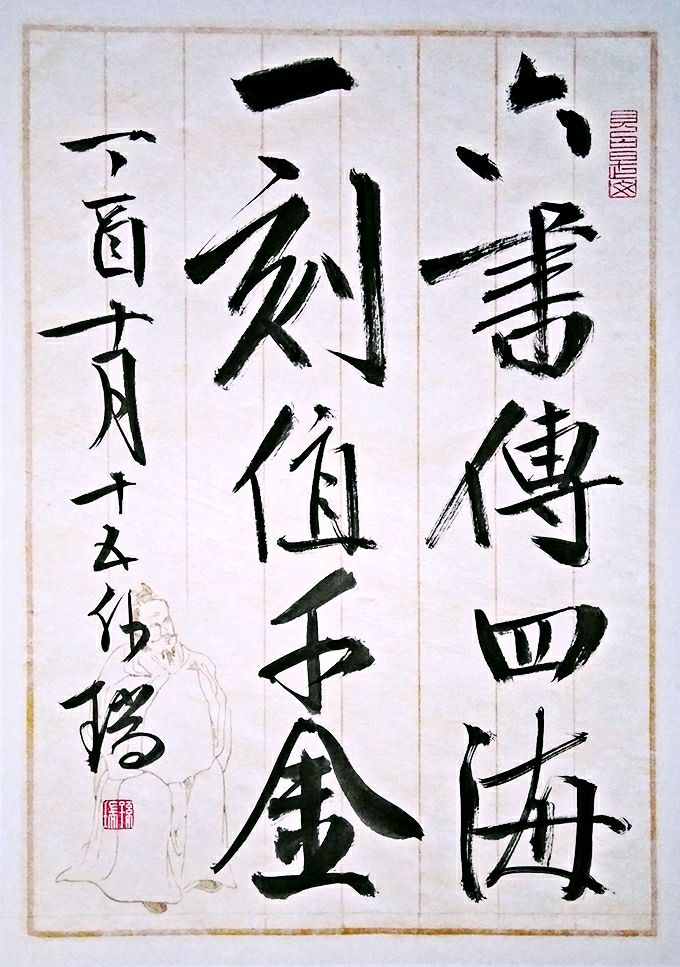 六書傳四海
一刻值千金
丁酉十月十五
瑞